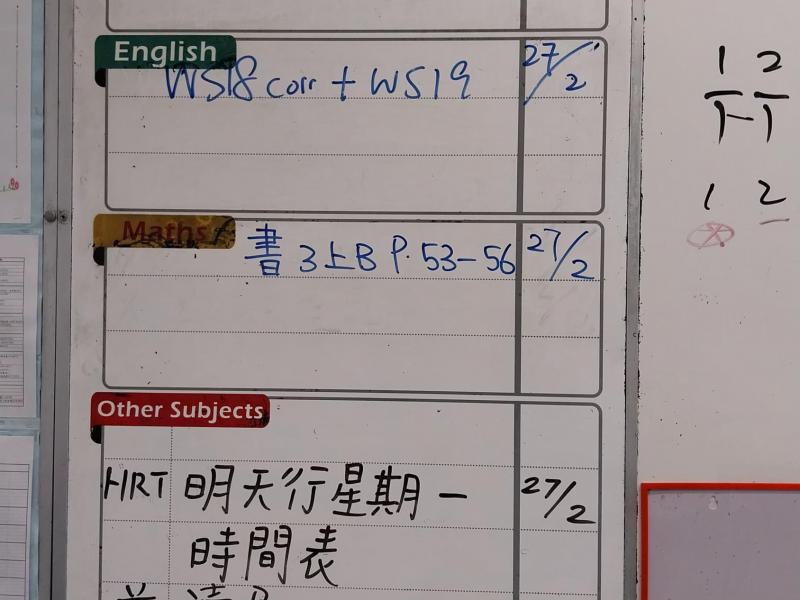 English
WS18 corr + WS19 27/2
Maths
書 3上B P. 53-56 27/2
Other Subjects
HRT 明天行星期一 27/2
時間表
1 2
1-1
1 2